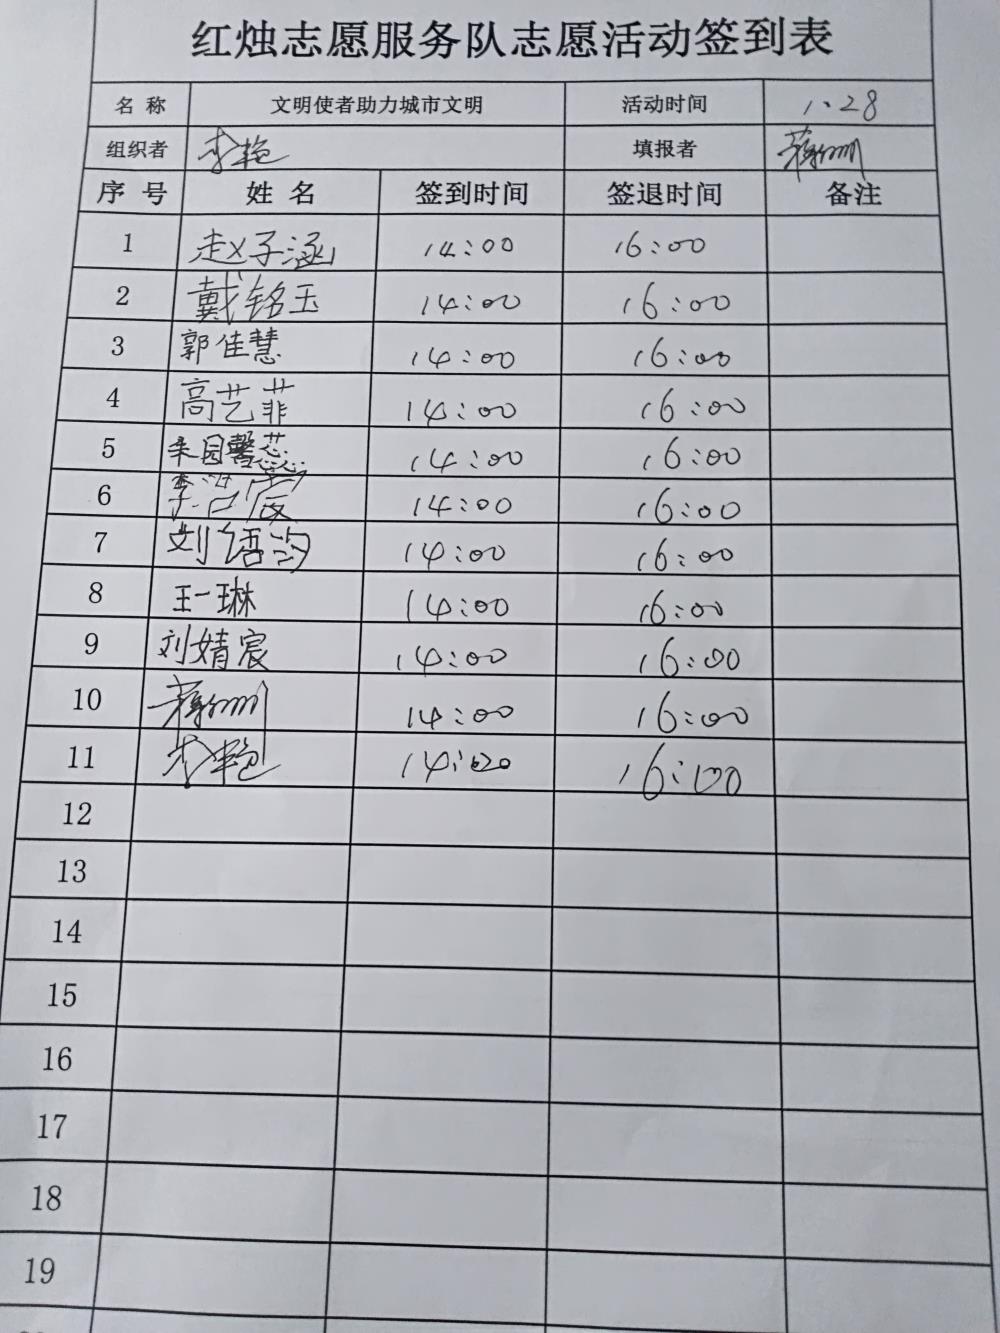 红烛志愿服务队志愿活动签到表
名 称 文明使者助力城市文明 活动时间 1.28
组织者 李艳 填报者
序 号 姓 名 签到时间 签退时间 备注
1 赵子涵 14:00 16:00
2 戴铭玉 14:00 16:00
3 郭佳慧 14:00 16:00
4 高艺菲 14:00 16:00
5 馨蕊 14:00 16:00
6 李浩宸 14:00 16:00
7 刘语 14:00 16:00
8 王一琳 14:00 16:00
9 刘婧宸 14:00 16:00
10 14:00 16:00
11 李艳 14:00 16:00
12
13
14
15
16
17
18
19